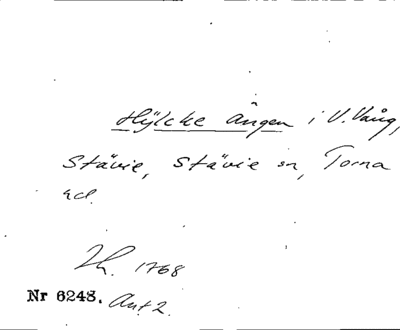 Hÿlcke Ängen i V. Vång,
Stävie, Stävie sn, Torna
hd.
Lh. 1768
Nr 6248. Ant 2.